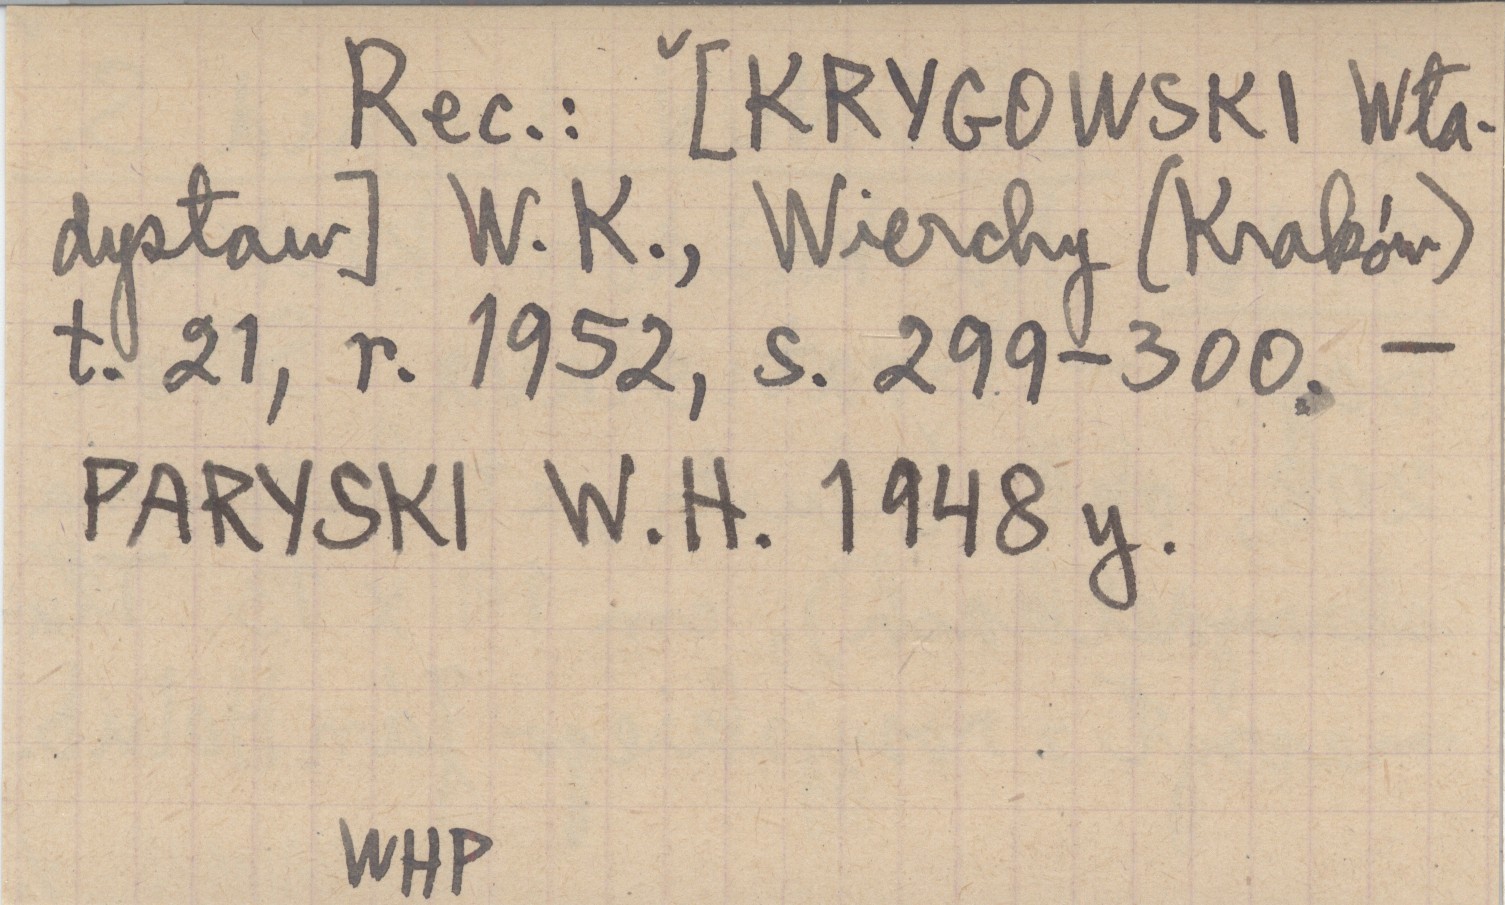 Rec.: ˇ[KRYGOWSKI Wła-
dysław] W.K., Wierchy (Kraków)
t. 21, r. 1952, s. 299-300. —
PARYSKI W.H. 1948 y.
WHP